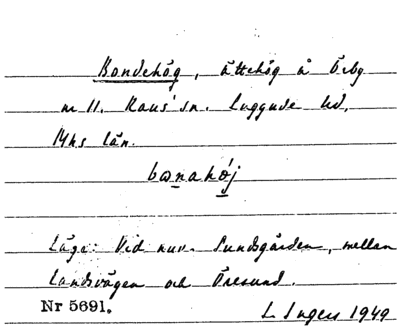 Bondehög, ättehög å Örby
nr 11. Raus' sn. Luggude hd,
Mhs län.
bɷnahøj
Läge: Vid nuv. Sundsgården, mellan
landsvägen och Öresund.
Nr 5691.
L Ingers 1949